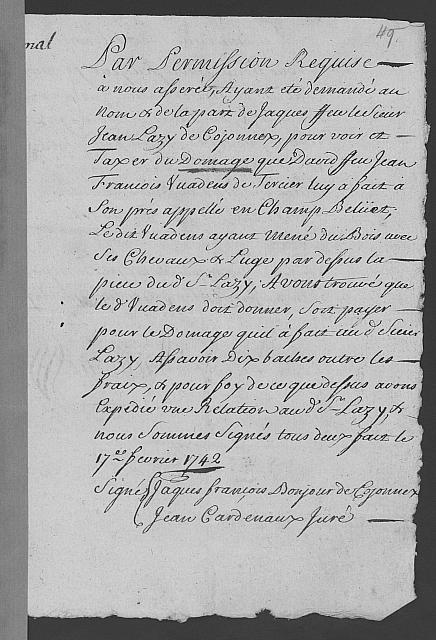 49.
nal
Par Permission Requise
à nous asserée, Ayant eté demandé au
nom & de la part de Jaques ffeu le Sieur
Jean Lazy de Cojonnex, pour voir et
Taxer du Domage que David ffeu Jean
François Vuadens de Tercier luy a fait à
Son prés appellé en Champ Belüet,
Le dit Vuadens ayant mené du Bois avec
Ses Chevaux & Luge par dessus la
piece du d.t S.r Lazy; Avons trouvé que
le d.t Vuadens doit donner, Soit payer
pour le Domage quil à fait au d.t Sieur
Lazy, Assavoir Dix batches outre les
fraix, & pour foy de ce que dessus avons
Expedié une Relation au d.t S.r Lazy, &
nous Sommes Signés tous deux fait le
17.e fevrier 1742
Signé Jaques françois Bonjour de Cojonnex
Jean Cardenaux Juré